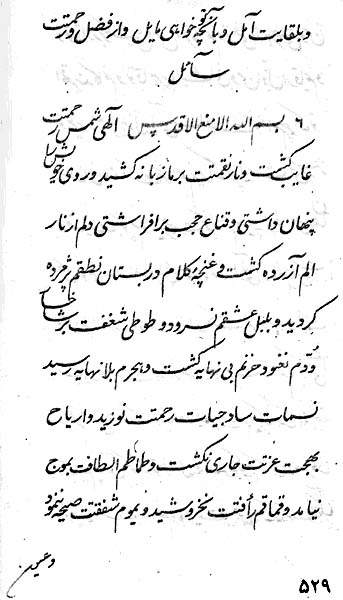 و بلقایت آمل و بآنچه تو خواهی مایل و از فضل و رحمتت
سائل
۶ بسم الله الامنع الاقدس الهی شمس رحمتت
غایب گشت و نار نقمتت بر ما زبانه کشید و روی خویش
پنهان داشتی و قناع حجب برافراشتی دلم از نار
الم آزرده گشت و غنچه کلام در بستان نطقم پژمرده
گردید و بلبل عشقم نسرود و طوطی شغفت بر شاخسار
ودّم نغنود حزنم بی نهایه گشت و هجرم بلانهایه رسید
نسمات ساذجیات رحمتت نوزید و اریاح
بهجت عزتت جاری نگشت و طماطم الطافت بموج
نیامد و قماقم رأفتت نخروشید و یموم شفقتت صیحه ننمود
و عیون
۵۲۹